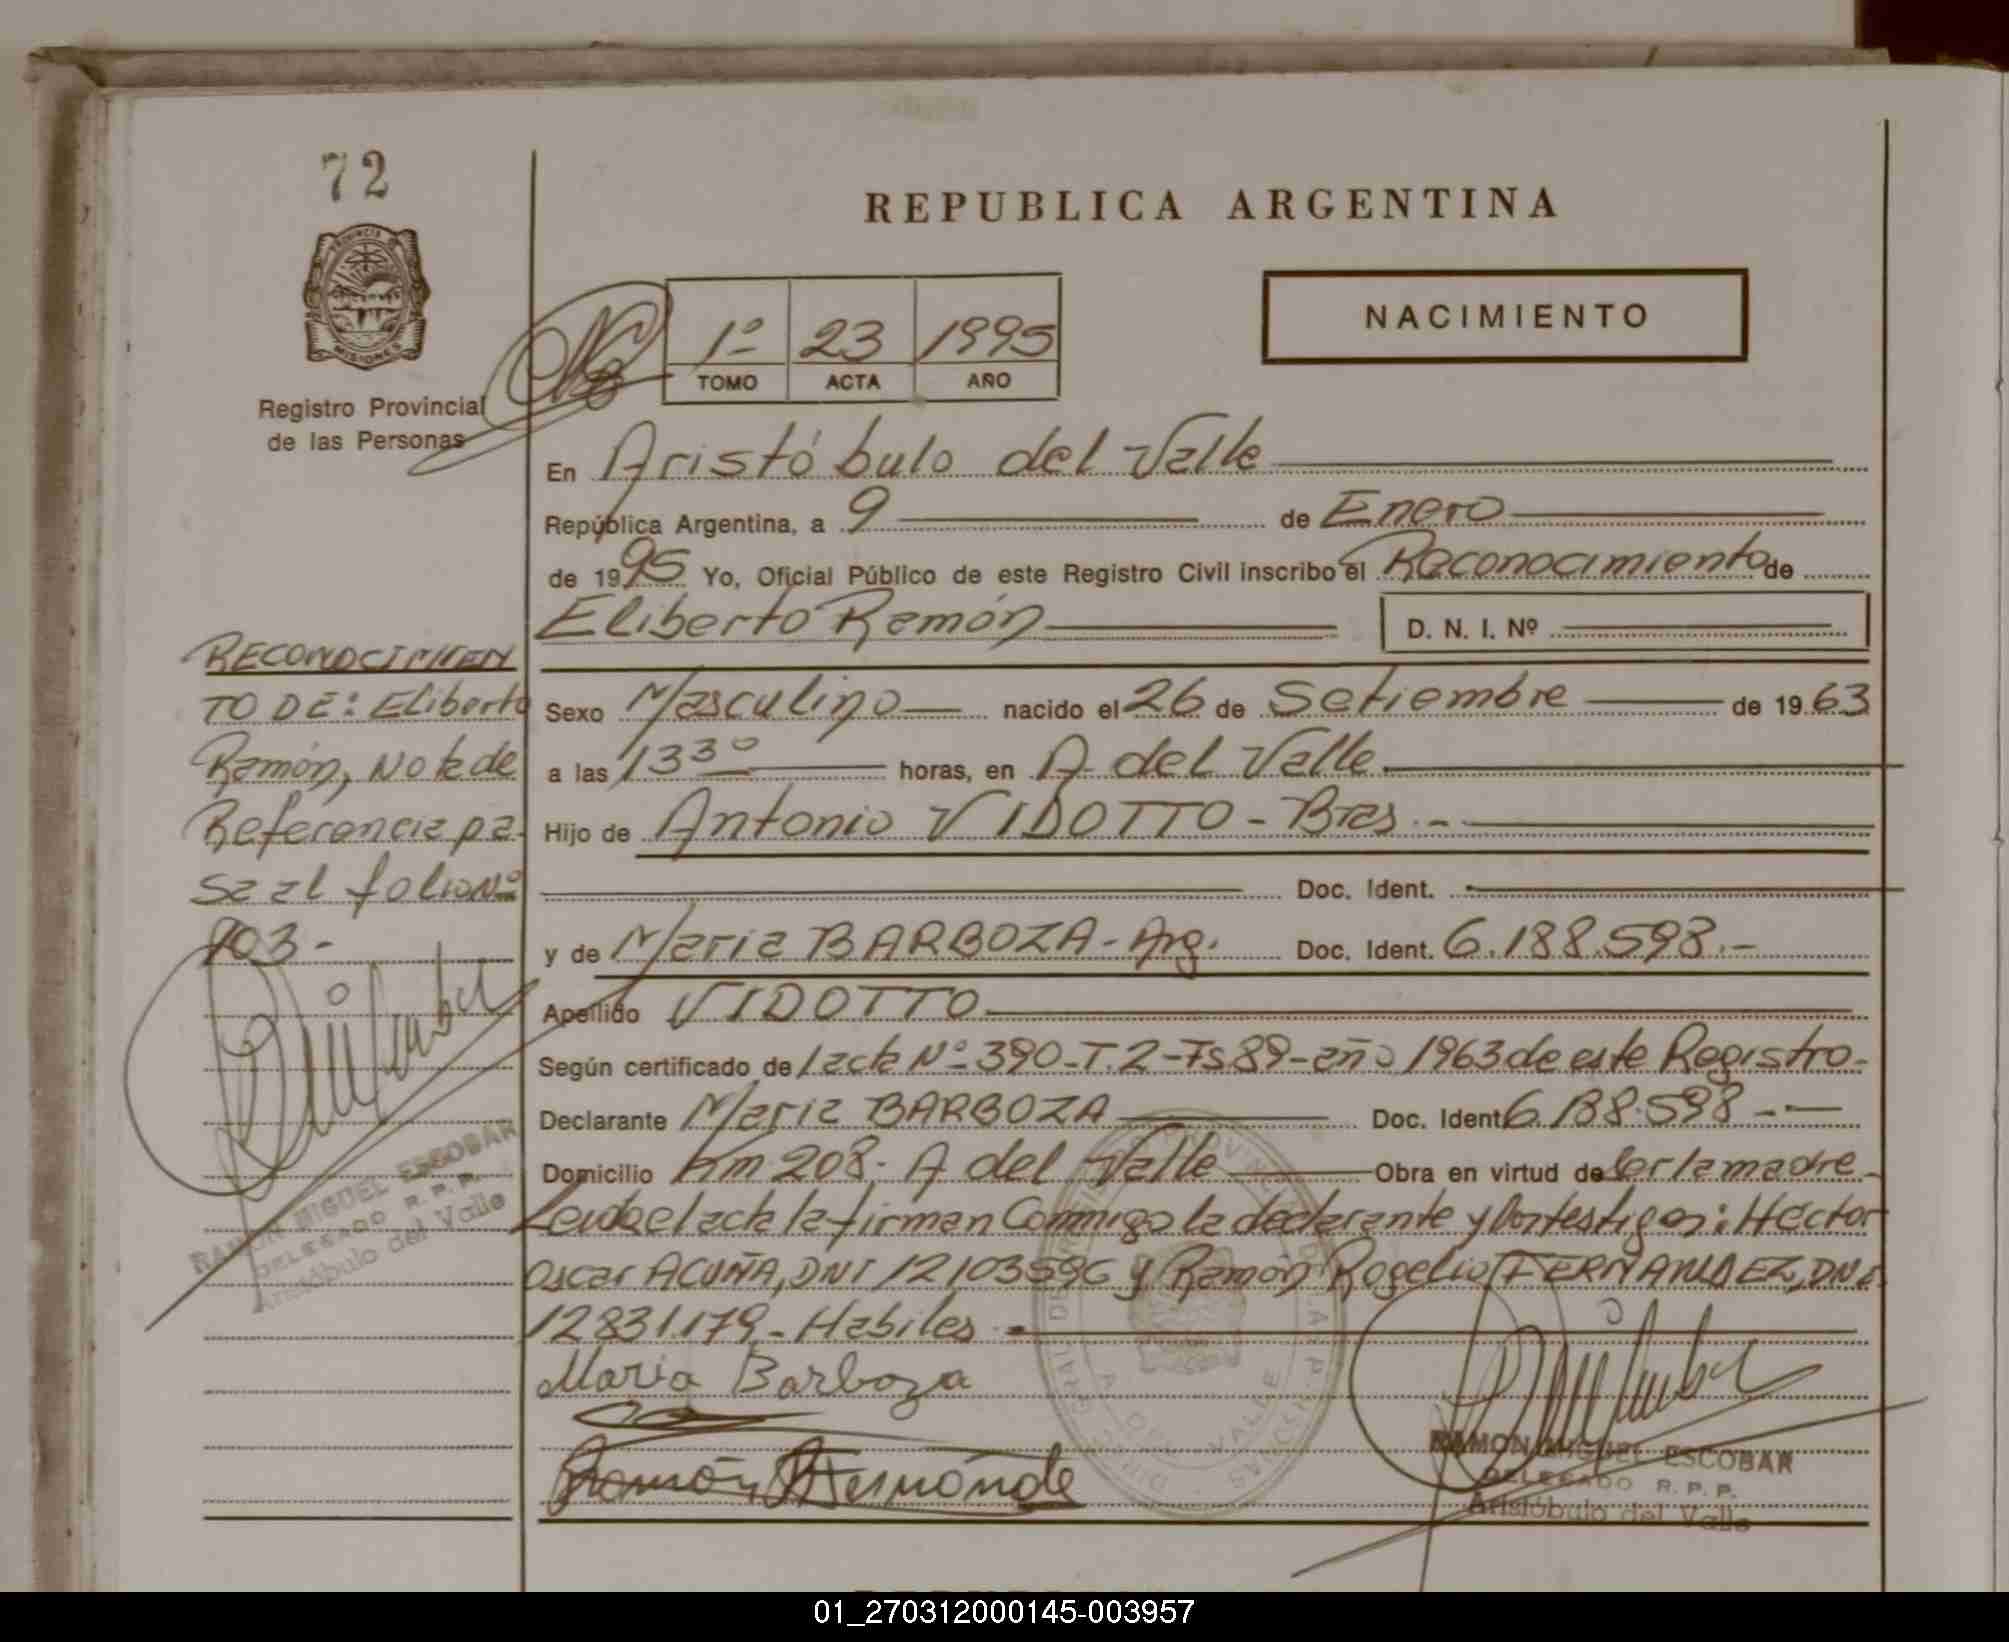 72
REPUBLICA ARGENTINA
PROVINCIA DE
MISIONES
Registro Provincial
de las Personas
1º 23 1995
TOMO ACTA AÑO
NACIMIENTO
En Aristóbulo del Valle
República Argentina, a 9 de Enero
de 1995 Yo, Oficial Público de este Registro Civil inscribo el Reconocimiento de
Eliberto Ramón D. N. I. Nº
Sexo Masculino nacido el 26 de Setiembre de 1963
a las 13 30 horas, en A del Valle
Hijo de Antonio VIDOTTO - Bras.-
Doc. Ident.
y de Maria BARBOZA - Arg. Doc. Ident. 6.188.598.-
Apellido VIDOTTO
Según certificado de acta Nº 390-T.2-Fs 89-año 1963 de este Registro-
Declarante Maria BARBOZA Doc. Ident. 6.188.598 -
Domicilio Km 208- A del Valle Obra en virtud de ser la madre-
Leida el acta la firman Conmigo la declarante y los testigos: Hector
Oscar ACUÑA, DNI 12103596 y Ramón Rogelio FERNANDEZ, DNI
12831.179.- Habiles.-
Maria Barboza
Ramón Fernande
RAMON MIGUEL ESCOBAR
DELEGADO R. P. P.
Aristóbulo del Valle
RECONOCIMIEN
TO DE: Eliberto
Ramón, Nota de
Referencia pa-
sa al folio Nº
103-
RAMON MIGUEL ESCOBAR
DELEGADO R. P. P.
Aristóbulo del Valle
01_270312000145-003957